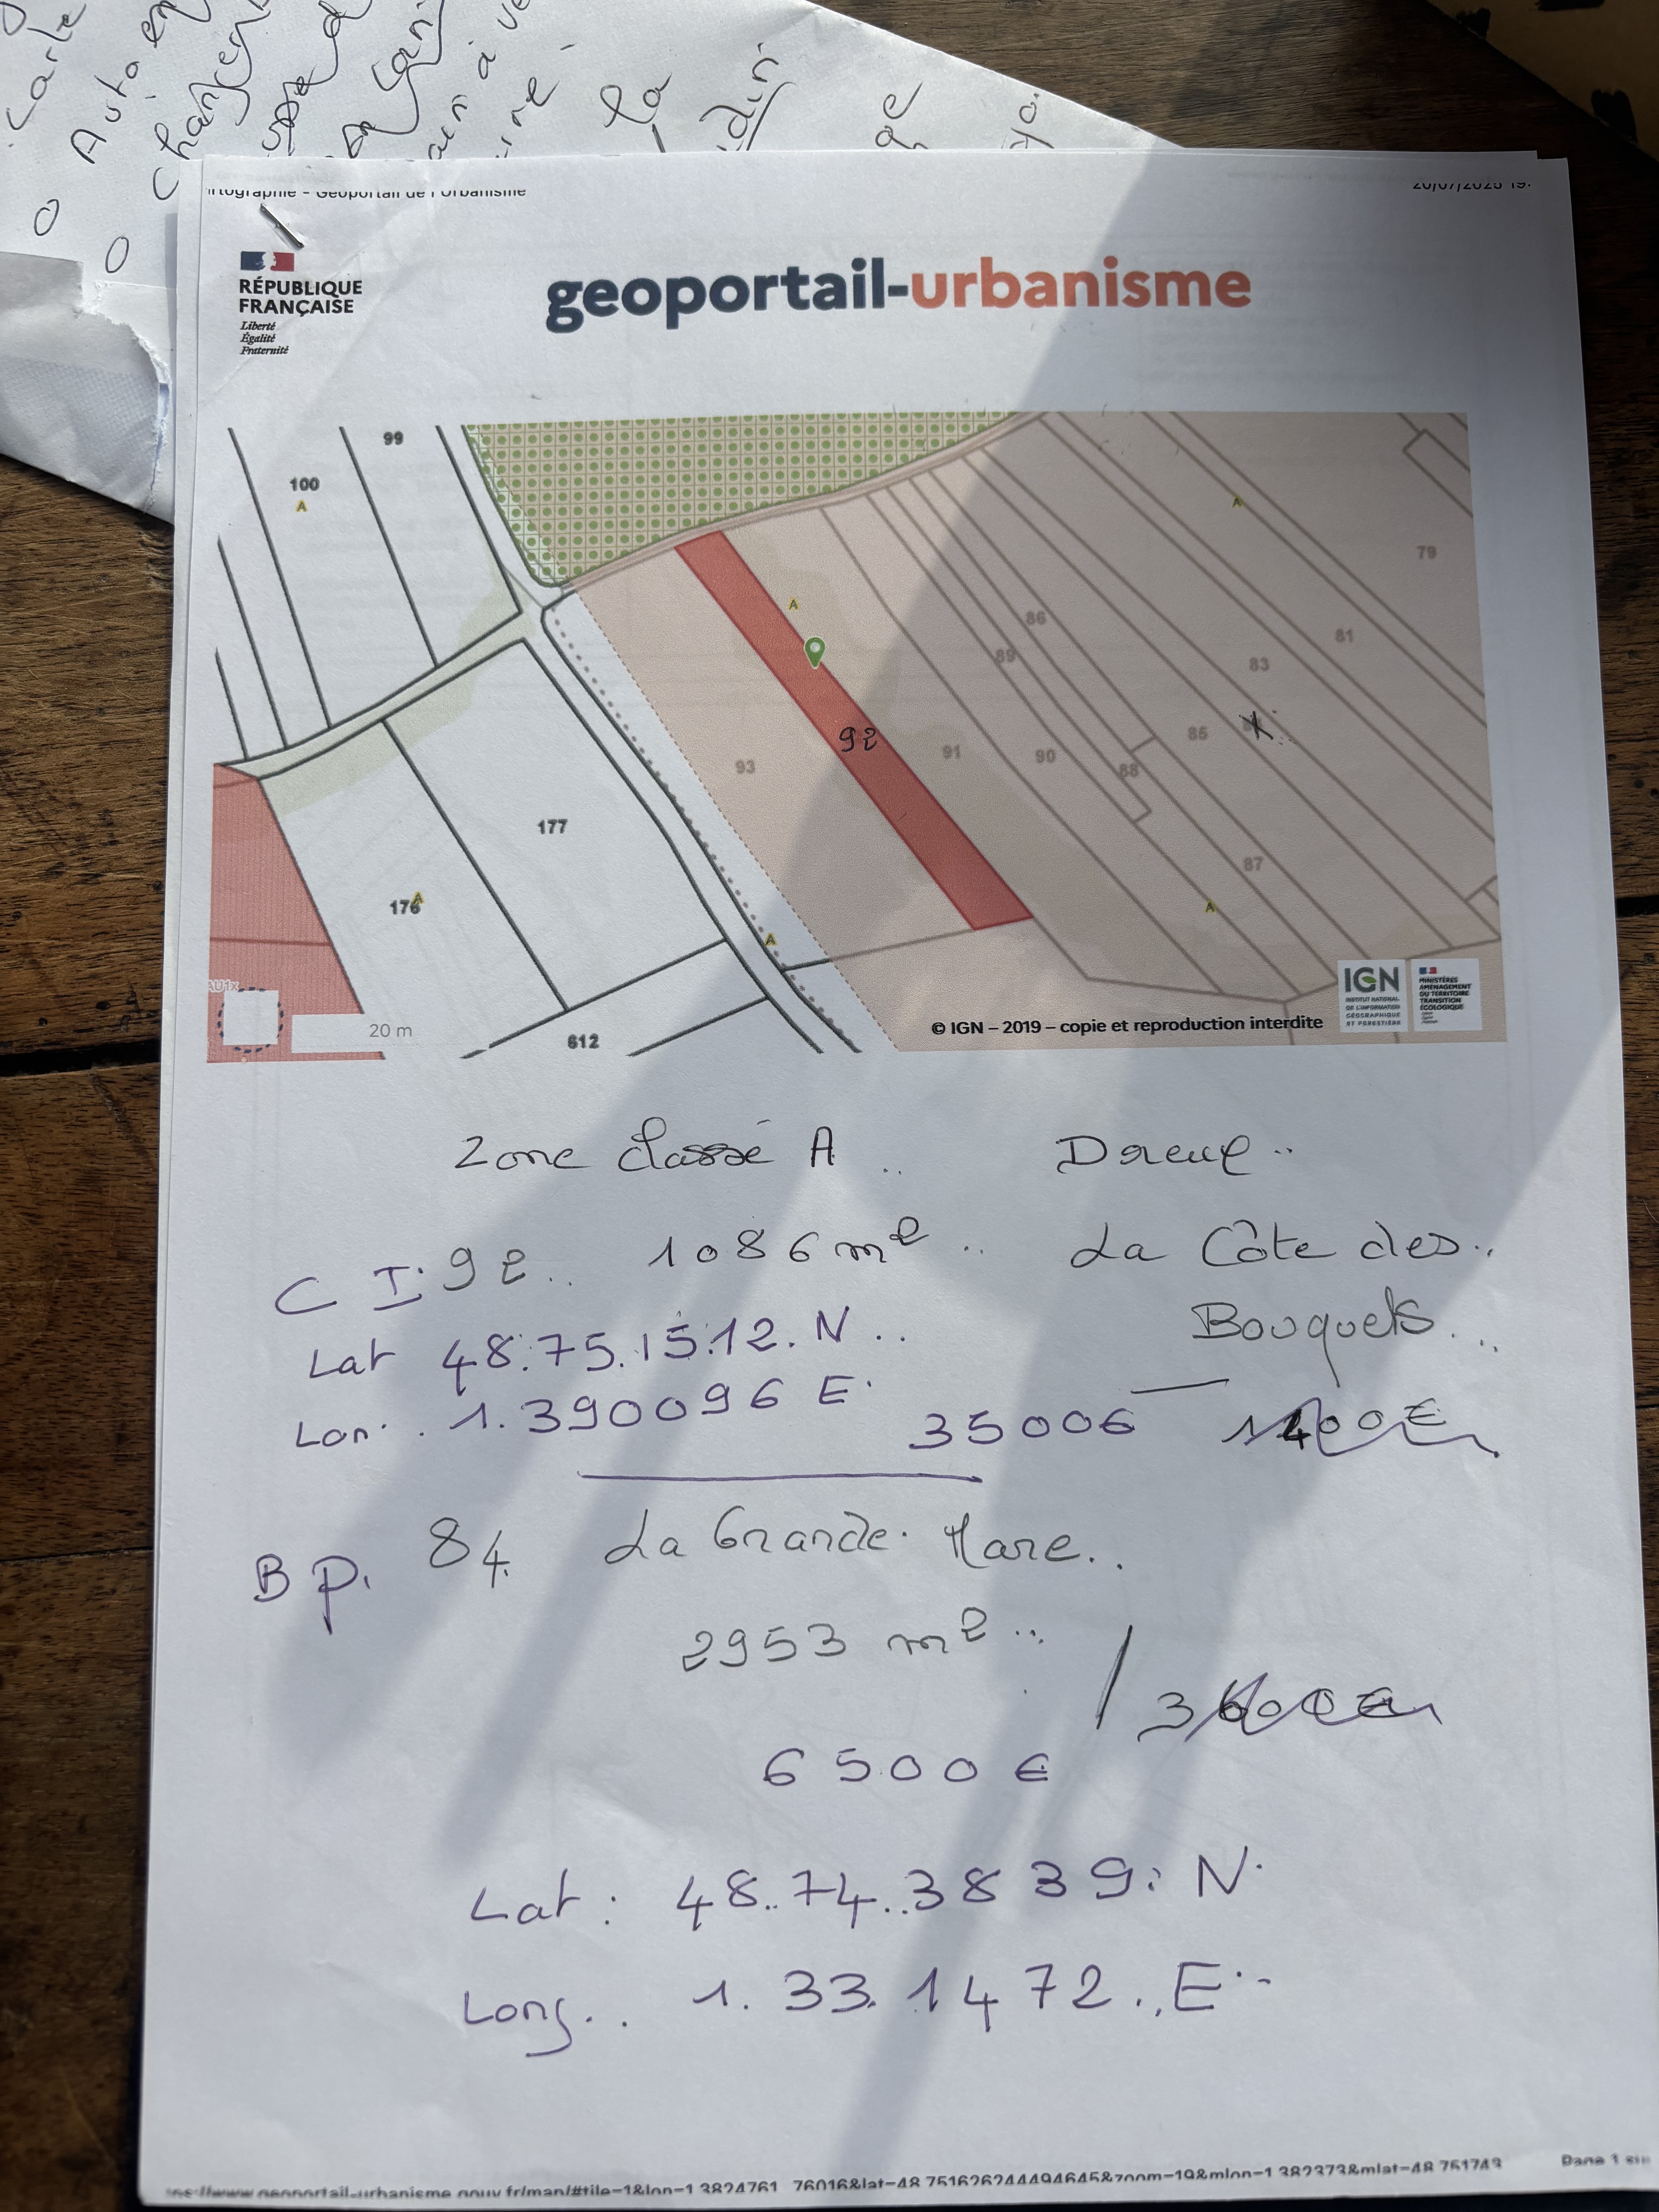 Carte
o Auto en
la
din
ge
rtographie - Géoportail de l'Urbanisme
20/07/2025 19:
RÉPUBLIQUE
FRANÇAISE
Liberté
Égalité
Fraternité
geoportail-urbanisme
99
100
A
79
A
A
86
81
89
83
92
85
93
91
90
88
177
87
176
A
A
A
AU1x
20 m
612
IGN
INSTITUT NATIONAL
DE L'INFORMATION
GÉOGRAPHIQUE
ET FORESTIÈRE
MINISTÈRES
AMÉNAGEMENT
DU TERRITOIRE
TRANSITION
ÉCOLOGIQUE
© IGN – 2019 – copie et reproduction interdite
Zone classé A .. Dreux ..
C I. 92 .. 1086 m² .. La Côte des ..
Bouquets ...
Lat 48.75.15.12. N ..
Lon . 1.390096 E.
3500€ 1400€
B p. 84. La Grande. Mare ..
2953 m² ..
/ 3600€
6500 €
Lat : 48..74..3839: N.
Long.. 1.33.1472.. E.-
ps://www.geoportail-urbanisme.gouv.fr/map/#tile=1&lon=1.3824761 76016&lat=48.751626244494645&zoom=19&mlon=1.382373&mlat=48.751743
Page 1 sur